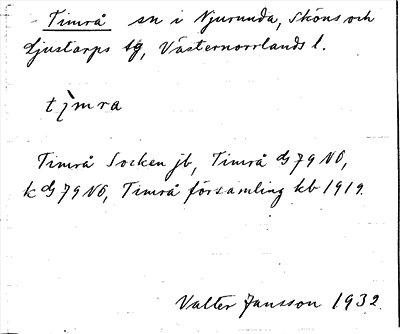 Timrå sn i Njurunda, Sköns och
Ljustorps tg, Västernorrlands l.
tìmra
Timrå Socken jb, Timrå dG 79 NO,
k dG 79 NO, Timrå församling kb 1919.
Valter Jansson 1932.